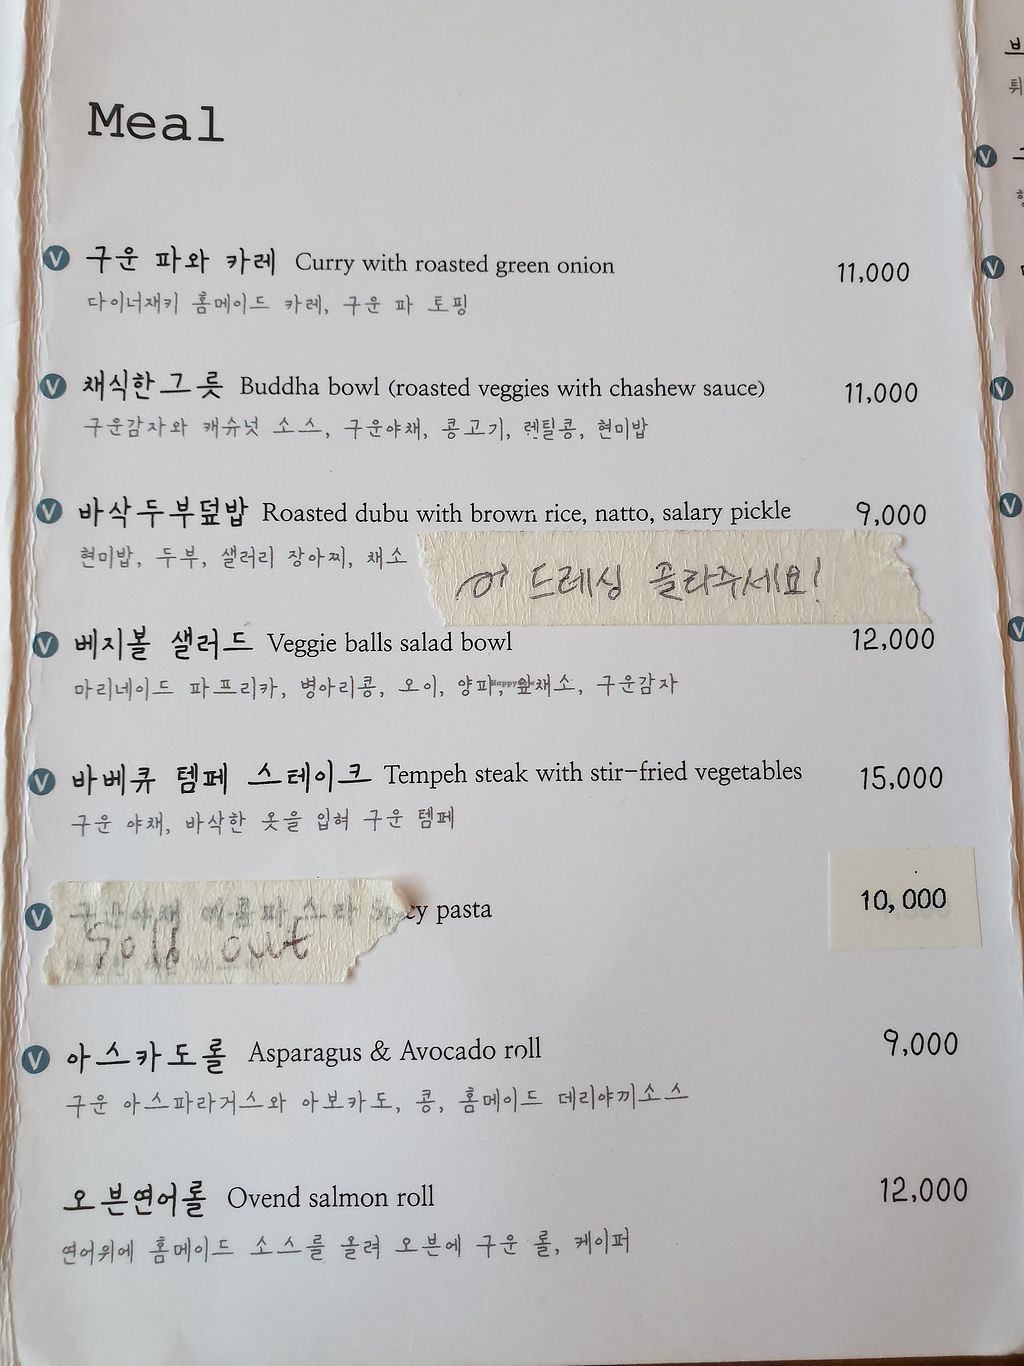 Meal
V 구운 파와 카레 Curry with roasted green onion 11,000
다이너재키 홈메이드 카레, 구운 파 토핑
V 채식한그릇 Buddha bowl (roasted veggies with chashew sauce) 11,000
구운감자와 캐슈넛 소스, 구운야채, 콩고기, 렌틸콩, 현미밥
V 바삭두부덮밥 Roasted dubu with brown rice, natto, salary pickle 9,000
현미밥, 두부, 샐러리 장아찌, 채소
드레싱 골라주세요!
V 베지볼 샐러드 Veggie balls salad bowl 12,000
마리네이드 파프리카, 병아리콩, 오이, 양파, 잎채소, 구운감자
V 바베큐 템페 스테이크 Tempeh steak with stir-fried vegetables 15,000
구운 야채, 바삭한 옷을 입혀 구운 템페
V pasta 10,000
Sold out
V 아스카도롤 Asparagus & Avocado roll 9,000
구운 아스파라거스와 아보카도, 콩, 홈메이드 데리야끼소스
오븐연어롤 Ovend salmon roll 12,000
연어위에 홈메이드 소스를 올려 오븐에 구운 롤, 케이퍼